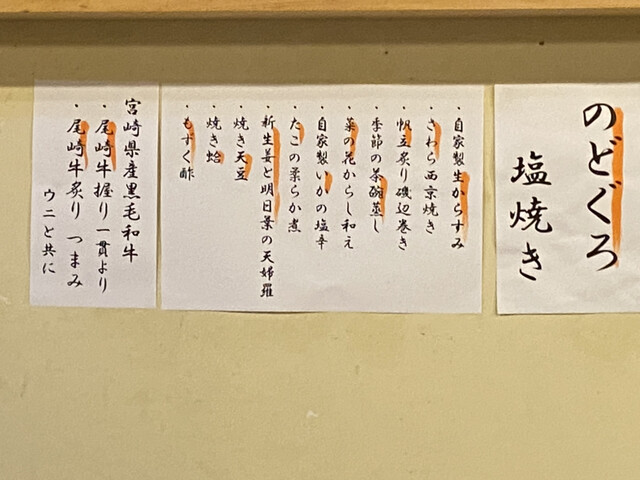 のどぐろ
塩焼き
・自家製生からすみ
・さわら西京焼き
・帆立炙り磯辺巻き
・季節の茶碗蒸し
・菜の花からし和え
・自家製いかの塩辛
・たこの柔らか煮
・新生姜と明日葉の天婦羅
・焼き天豆
・焼き蛤
・もずく酢
宮崎県産黒毛和牛
・尾崎牛握り一貫より
・尾崎牛炙り つまみ
ウニと共に